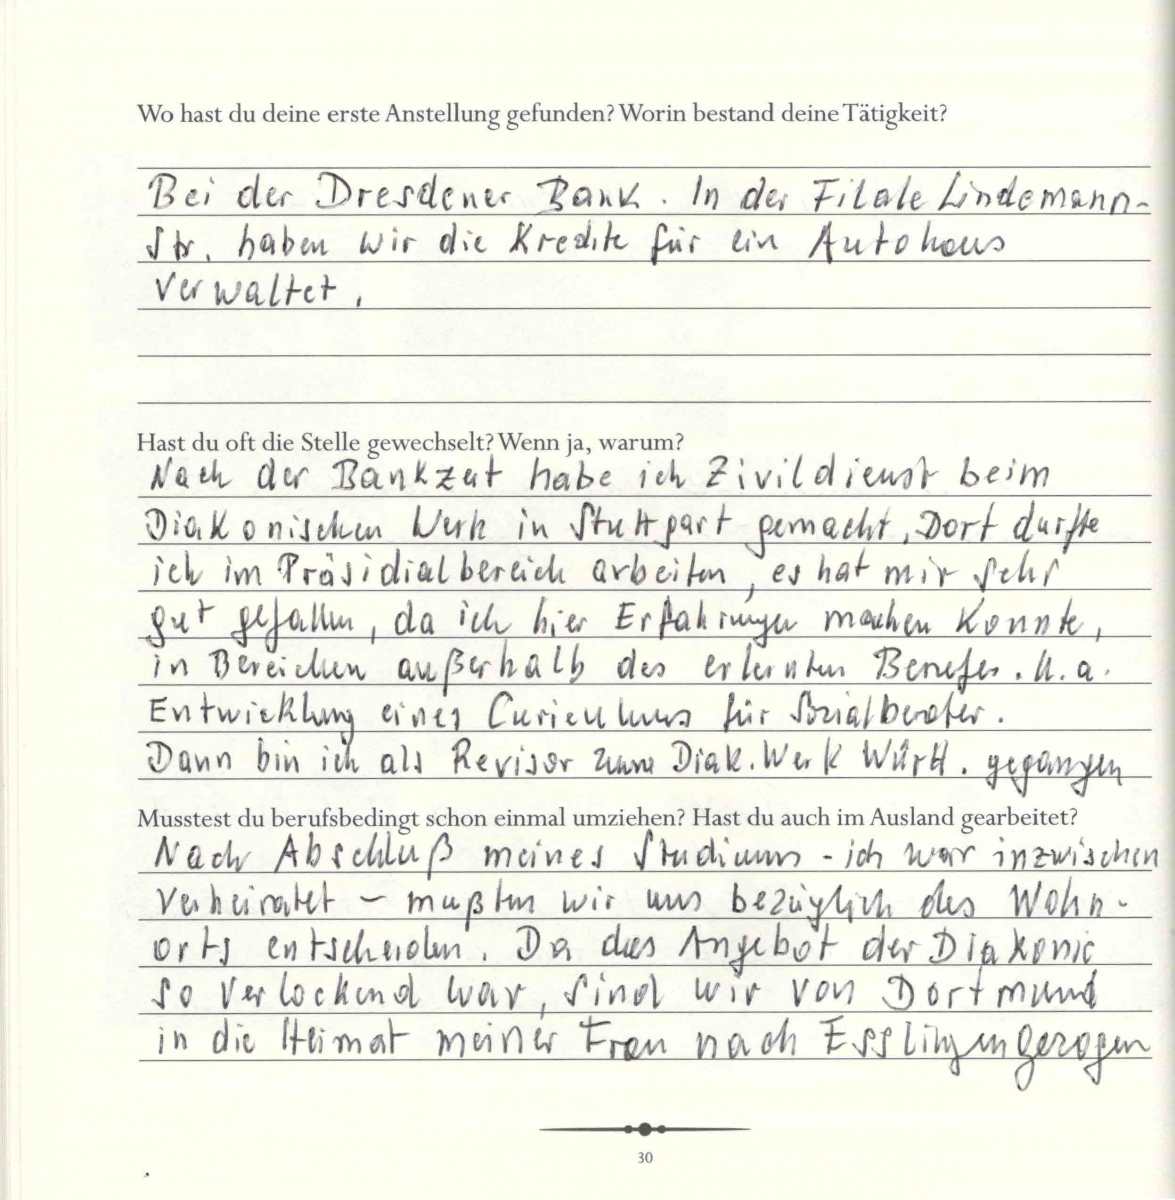 Wo hast du deine erste Anstellung gefunden? Worin bestand deine Tätigkeit?
Bei der Dresdener Bank. In der Filale Lindemann-
Str. haben wir die Kredite für ein Autohaus
verwaltet.
Hast du oft die Stelle gewechselt? Wenn ja, warum?
Nach der Bankzeit habe ich Zivildienst beim
Diakonischen Werk in Stuttgart gemacht. Dort durfte
ich im Präsidialbereich arbeiten, es hat mir sehr
gut gefallen, da ich hier Erfahrungen machen konnte,
in Bereichen außerhalb des erlernten Berufes. U. a.
Entwicklung eines Curiculums für Sozialberater.
Dann bin ich als Revisor zum Diak. Werk Württ. gegangen
Musstest du berufsbedingt schon einmal umziehen? Hast du auch im Ausland gearbeitet?
Nach Abschluß meines Studiums - ich war inzwischen
verheiratet – mußten wir uns bezüglich des Wohn-
orts entscheiden. Da das Angebot der Diakonie
so verlockend war, sind wir von Dortmund
in die Heimat meiner Frau nach Esslingen gezogen
30